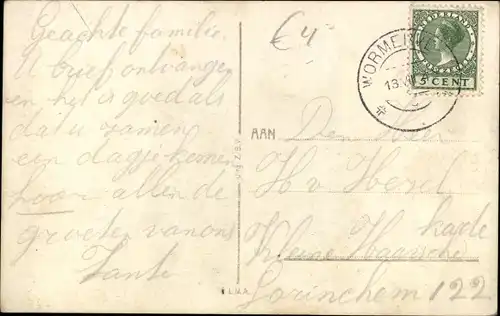 Geachte familie
U brief ontvangen
en het is goed als
dat u zamen
een dagje komen
hoor allen de
groeten van ons
Tante
€4
WORMER
13.VII
5 CENT
AAN
Den Heer
H v Hezel
kade
Kleine Haarsche
Gorinchem 122